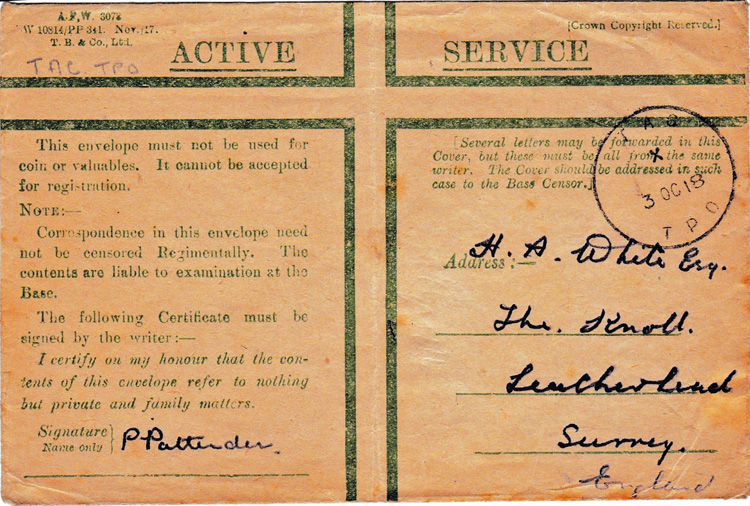 A.F.W. 3078
W 10814/PP 341. Nov./17.
T. B. & Co., Ltd.
[Crown Copyright Reserved.]
TAC TPO
ACTIVE SERVICE
This envelope must not be used for
coin or valuables. It cannot be accepted
for registration.
NOTE:—
Correspondence in this envelope need
not be censored Regimentally. The
contents are liable to examination at the
Base.
The following Certificate must be
signed by the writer:—
I certify on my honour that the con-
tents of this envelope refer to nothing
but private and family matters.
Signature
Name only
P Pattender
[Several letters may be forwarded in this
Cover, but these must be all from the same
writer. The Cover should be addressed in such
case to the Base Censor.]
3 OC 18
T P O
Address:—
H. A. White Esq.
The. Knoll.
Leatherhead
Surrey.
England